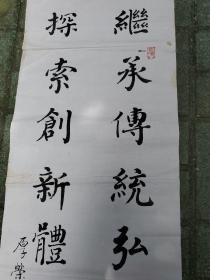 繼承傳統弘
探索創新體
厚榮